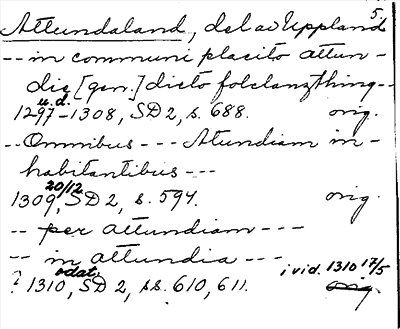 5.
Attundaland, del av Uppland
-- in communi placito attun-
die [gen.] dicto folclanzthing --
u.d.
1297-1308, SD 2, s. 688. orig.
-- Omnibus --- Atundiam in-
habitantibus ---
20/12
1309, SD 2, s. 594. orig.
-- per attundiam ---
-- in attundia ---
odat. i vid. 1310 17/5
? 1310, SD 2, ss. 610, 611. orig.